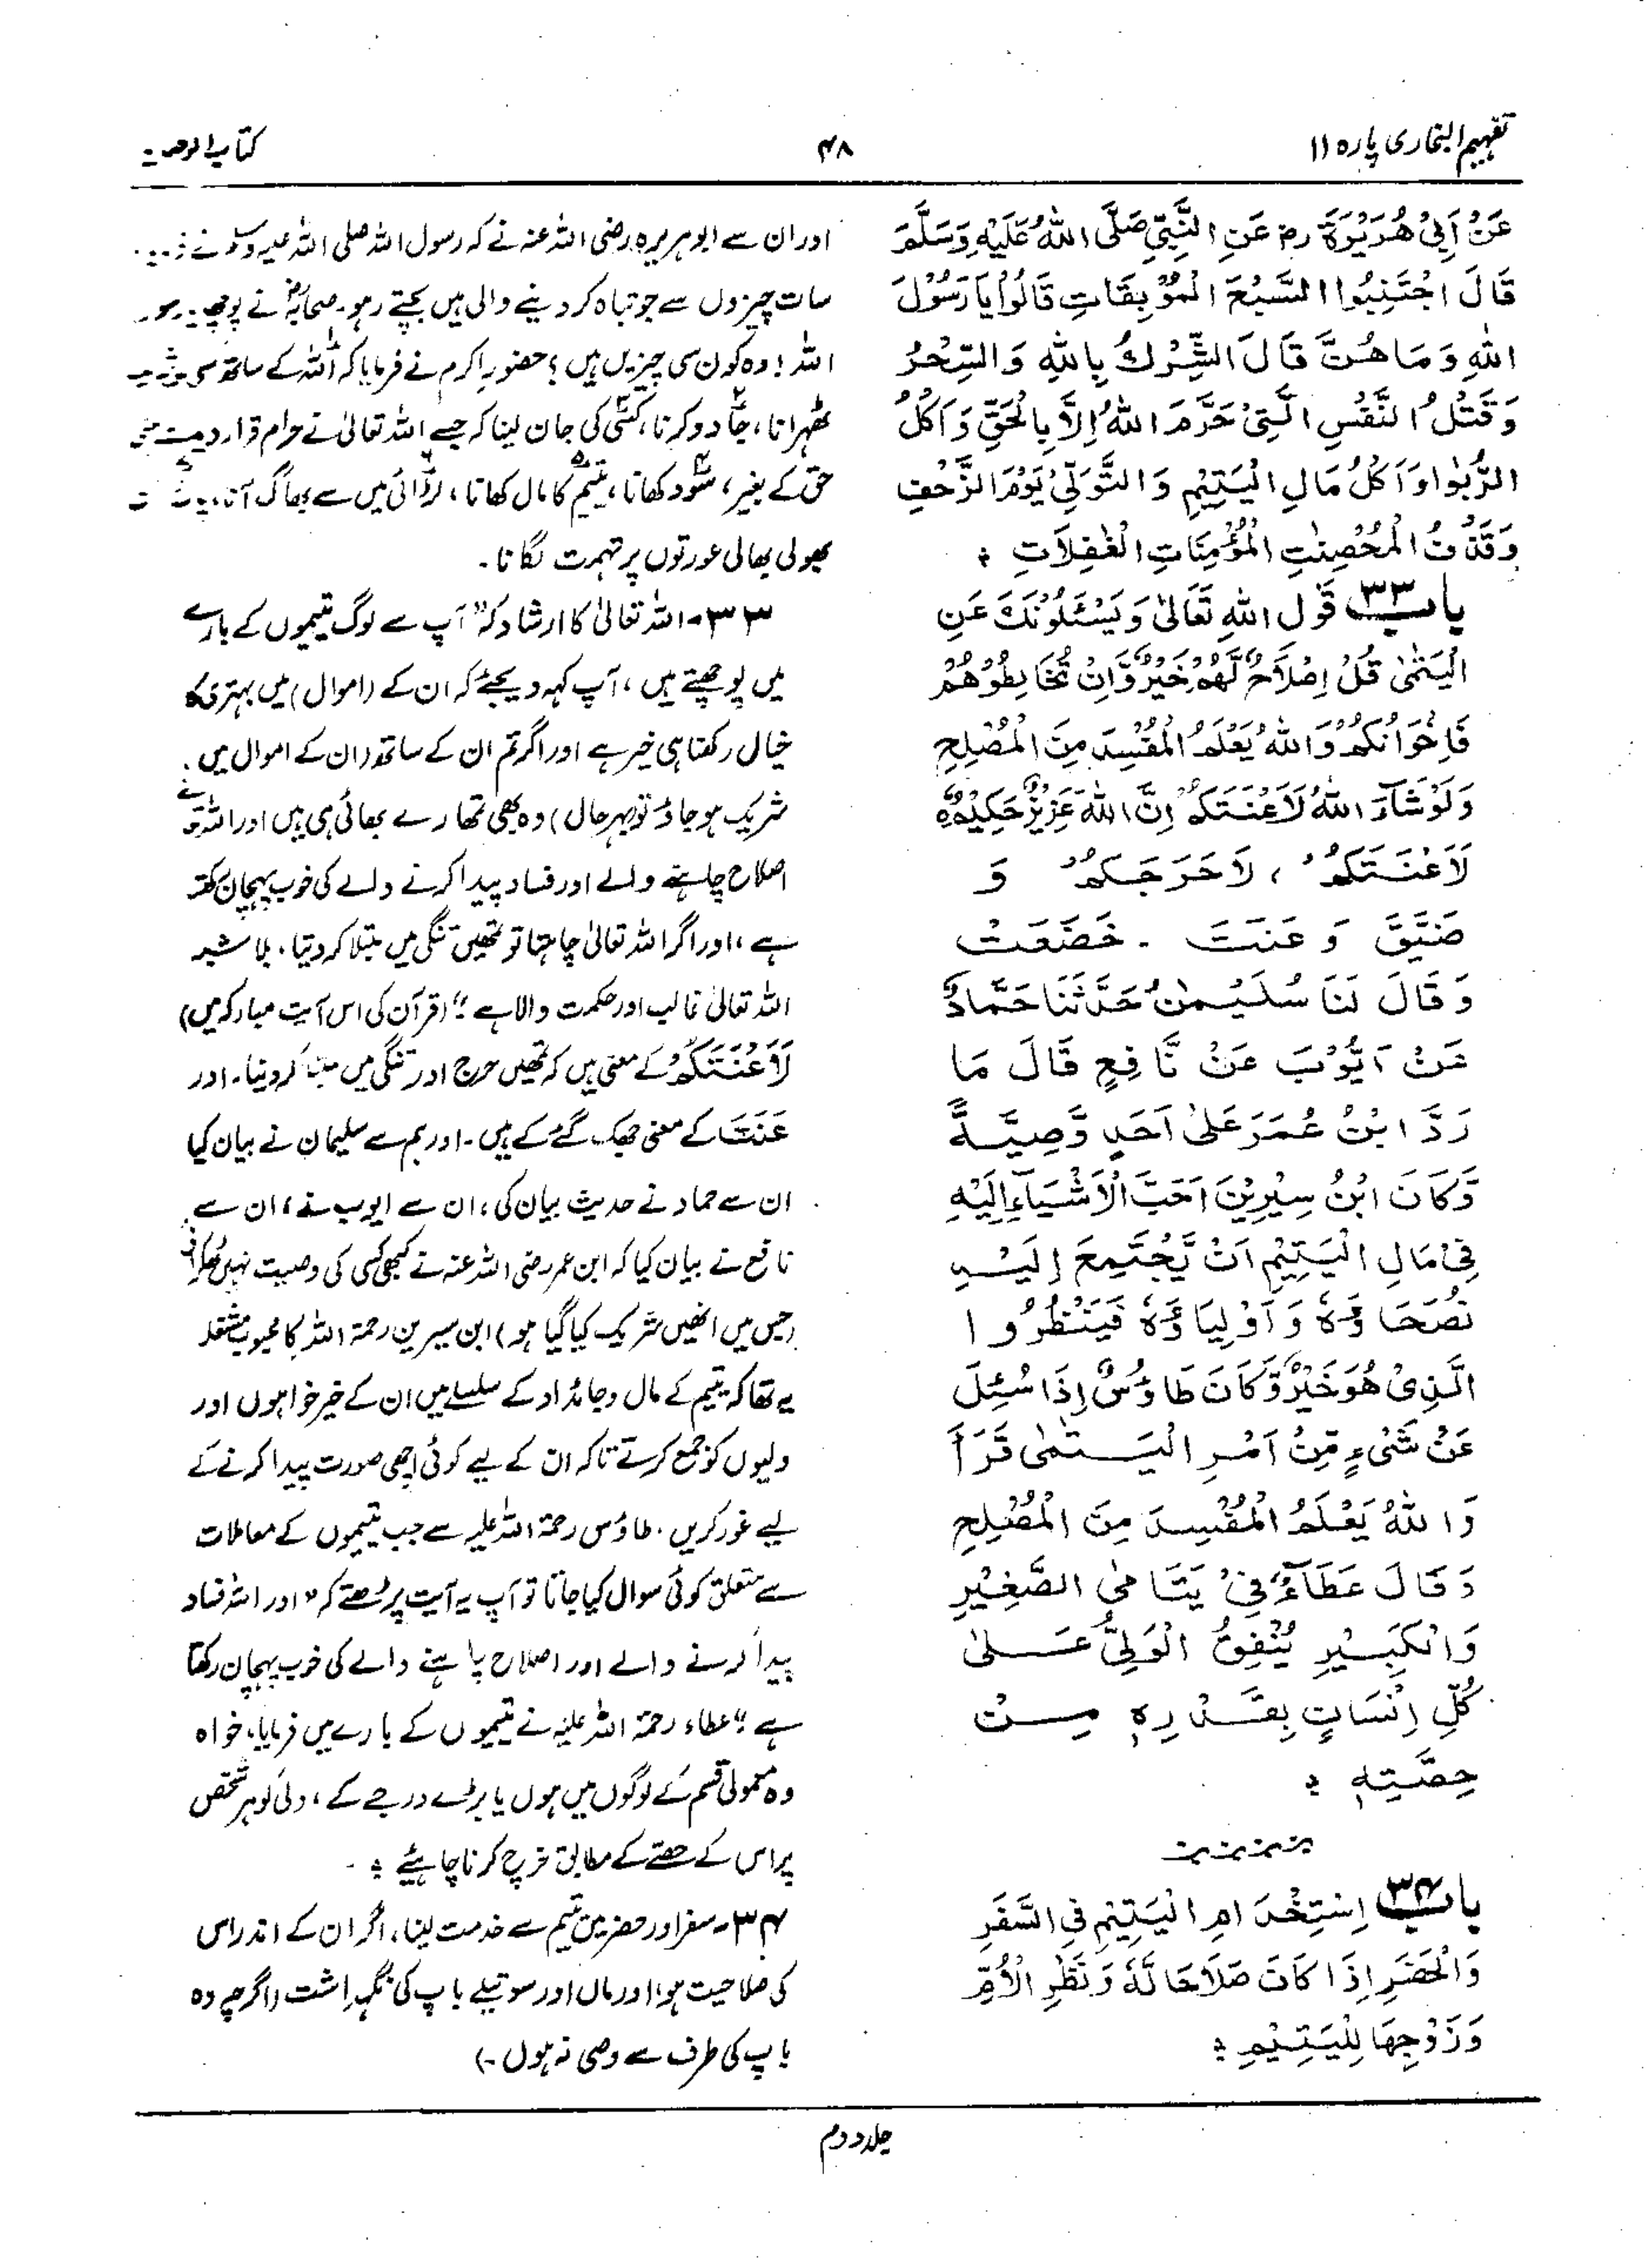 تفہیم البخاری پارہ ۱۱
۴۸
کتاب الوصـ
عَنْ اَبِیْ هُرَیْرَةَ رض عَنِ النَّبِیِّ صَلَّی اللّٰهُ عَلَیْهِ وَسَلَّمَ
قَالَ اجْتَنِبُوا السَّبْعَ الْمُوْبِقَاتِ قَالُوْا یَا رَسُوْلَ
اللّٰهِ وَمَا هُنَّ قَالَ الشِّرْكُ بِاللّٰهِ وَالسِّحْرُ
وَقَتْلُ النَّفْسِ الَّتِیْ حَرَّمَ اللّٰهُ اِلَّا بِالْحَقِّ وَاَكْلُ
الرِّبٰوا وَاَكْلُ مَالِ الْیَتِیْمِ وَالتَّوَلِّیْ یَوْمَ الزَّحْفِ
وَقَذْفُ الْمُحْصِنٰتِ الْمُؤْمِنَاتِ الْغٰفِلَاتِ ؛
باب ۳۳ قَوْلِ اللّٰهِ تَعَالٰی وَیَسْئَلُوْنَكَ عَنِ
الْیَتٰمٰی قُلْ اِصْلَاحٌ لَّهُمْ خَیْرٌ وَّاِنْ تُخَالِطُوْهُمْ
فَاِخْوَانُكُمْ وَاللّٰهُ یَعْلَمُ الْمُفْسِدَ مِنَ الْمُصْلِحِ
وَلَوْ شَآءَ اللّٰهُ لَاَعْنَتَكُمْ اِنَّ اللّٰهَ عَزِیْزٌ حَكِیْمٌ
لَاَعْنَتَكُمْ ، لَاَحْرَجَكُمْ وَ
ضَیَّقَ وَ عَنَتَ ۔ خَضَعَتْ
وَقَالَ لَنَا سُلَیْمٰنُ حَدَّثَنَا حَمَّادٌ
عَنْ اَیُّوْبَ عَنْ نَّافِعٍ قَالَ مَا
رَدَّ ابْنُ عُمَرَ عَلٰی اَحَدٍ وَّصِیَّةً
وَّكَانَ ابْنُ سِیْرِیْنَ اَحَبَّ الْاَشْیَآءِ اِلَیْهِ
فِیْ مَالِ الْیَتِیْمِ اَنْ یَّجْتَمِعَ اِلَیْهِ
نُصَحَاؤُهٗ وَاَوْلِیَاؤُهٗ فَیَنْظُرُوا
الَّذِیْ هُوَ خَیْرٌ وَّكَانَ طَاوٗسٌ اِذَا سُئِلَ
عَنْ شَیْءٍ مِّنْ اَمْرِ الْیَتٰمٰی قَرَأَ
وَاللّٰهُ یَعْلَمُ الْمُفْسِدَ مِنَ الْمُصْلِحِ
وَقَالَ عَطَآءٌ فِیْ یَتَامٰی الصَّغِیْرِ
وَالْكَبِیْرِ یُنْفِقُ الْوَلِیُّ عَلٰی
كُلِّ اِنْسَانٍ بِقَدْرِهٖ مِنْ
حِصَّتِهٖ ؛
باب ۳۴ اِسْتِخْدَامِ الْیَتِیْمِ فِی السَّفَرِ
وَالْحَضَرِ اِذَا كَانَ صَلَاحًا لَّهٗ وَنَظَرِ الْاُمِّ
وَزَوْجِهَا لِلْیَتِیْمِ ؛
اور ان سے ابوہریرہ رضی اللہ عنہ نے کہ رسول اللہ صلی اللہ علیہ وسلم نے
سات چیزوں سے جو تباہ کر دینے والی ہیں بچتے رہو۔ صحابہؓ نے پوچھا
اللہ! وہ کون سی چیزیں ہیں؟ حضور اکرم نے فرمایا کہ اللہ کے ساتھ کسی
ٹھہرانا، جادو کرنا، کسی کی جان لینا کہ جسے اللہ تعالیٰ نے حرام قرار
حق کے بغیر، سود کھانا، یتیم کا مال کھانا، لڑائی میں سے بھاگ آنا،
بھولی بھالی عورتوں پر تہمت لگانا۔
۳۳۔ اللہ تعالیٰ کا ارشاد کہ "آپ سے لوگ یتیموں کے بارے
میں پوچھتے ہیں، آپ کہہ دیجئے کہ ان کے (اموال) میں بہتری کا
خیال رکھنا ہی خیر ہے اور اگر تم ان کے ساتھ (ان کے اموال میں
شریک ہو جاؤ تو بہرحال) وہ بھی تمھارے بھائی ہی ہیں اور اللہ تعالے
اصلاح چاہنے والے اور فساد پیدا کرنے والے کی خوب پہچان رکھتا
ہے، اور اگر اللہ تعالیٰ چاہتا تو تمھیں تنگی میں مبتلا کر دیتا، بلا شبہ
اللہ تعالیٰ غالب اور حکمت والا ہے" (قرآن کی اس آیت مبارکہ میں)
لَاَعْنَتَكُمْ کے معنی ہیں کہ تمھیں حرج اور تنگی میں مبتلا کر دیتا۔ اور
عَنَتَ کے معنی جھک گئے کے ہیں۔ اور ہم سے سلیمان نے بیان کیا
ان سے حماد نے حدیث بیان کی، ان سے ایوب نے، ان سے
نافع نے بیان کیا کہ ابن عمر رضی اللہ عنہ نے کبھی کسی کی وصیت نہیں ٹھکرائی
(جس میں انھیں شریک کیا گیا ہو) ابن سیرین رحمۃ اللہ کا محبوب مشغلہ
یہ تھا کہ یتیم کے مال و جائداد کے سلسلے میں ان کے خیر خواہوں اور
ولیوں کو جمع کرتے تاکہ ان کے لیے کوئی اچھی صورت پیدا کرنے کے
لیے غور کریں۔ طاؤس رحمۃ اللہ علیہ سے جب یتیموں کے معاملات
سے متعلق کوئی سوال کیا جاتا تو آپ یہ آیت پڑھتے کہ "اور اللہ فساد
پیدا کرنے والے اور اصلاح چاہنے والے کی خوب پہچان رکھتا
ہے" عطاء رحمۃ اللہ علیہ نے یتیموں کے بارے میں فرمایا، خواہ
وہ معمولی قسم کے لوگوں میں ہوں یا بڑے درجے کے، ولی کو ہر شخص
پر اس کے حصے کے مطابق خرچ کرنا چاہیئے ؛
۳۴۔ سفر اور حضر میں یتیم سے خدمت لینا، اگر ان کے اندر اس
کی صلاحیت ہو، اور ماں اور سوتیلے باپ کی نگہداشت (اگرچہ وہ
باپ کی طرف سے وصی نہ ہوں۔)
جلد دوم